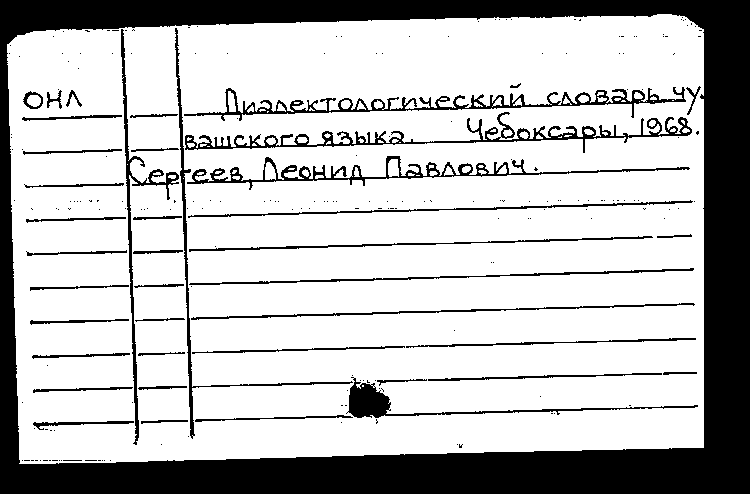 ОНЛ Диалектологический словарь чу-
вашского языка. Чебоксары, 1968.
Сергеев, Леонид Павлович.